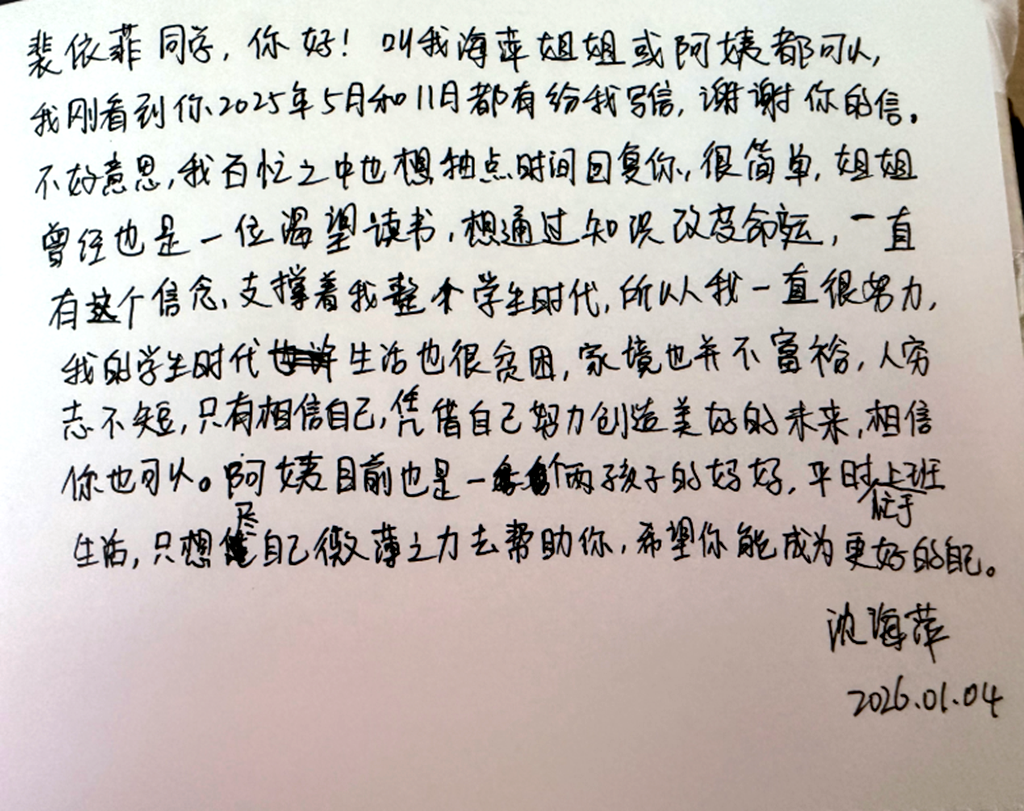 裴依菲同学，你好！叫我海萍姐姐或阿姨都可以，
我刚看到你2025年5月和11月都有给我写信，谢谢你的信。
不好意思，我百忙之中也想抽点时间回复你，很简单，姐姐
曾经也是一位渴望读书，想通过知识改变命运，一直
有这个信念，支撑着我整个学生时代，所以我一直很努力，
我的学生时代生活也很贫困，家境也并不富裕，人穷
志不短，只有相信自己，凭借自己努力创造美好的未来，相信
你也可以。阿姨目前也是一个两孩子的妈妈，平时忙于上班
生活，只想尽自己微薄之力去帮助你，希望你能成为更好的自己。
沈海萍
2026.01.04